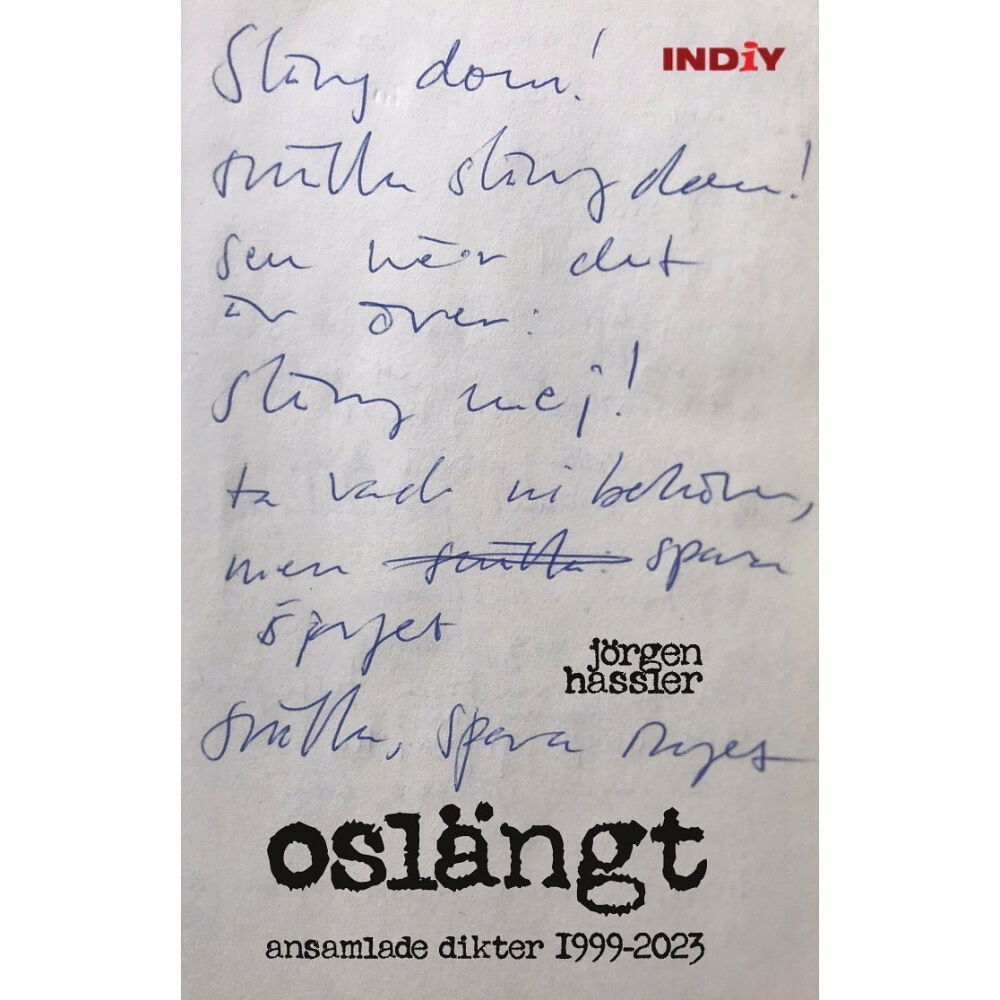 Släng dom!
INDiY
snälla släng dom!
sen när det
är över:
släng mej!
ta vad ni behöver,
men snälla spara
jörgen
hassler
snälla, spara
oslängt
ansamlade dikter 1999-2023